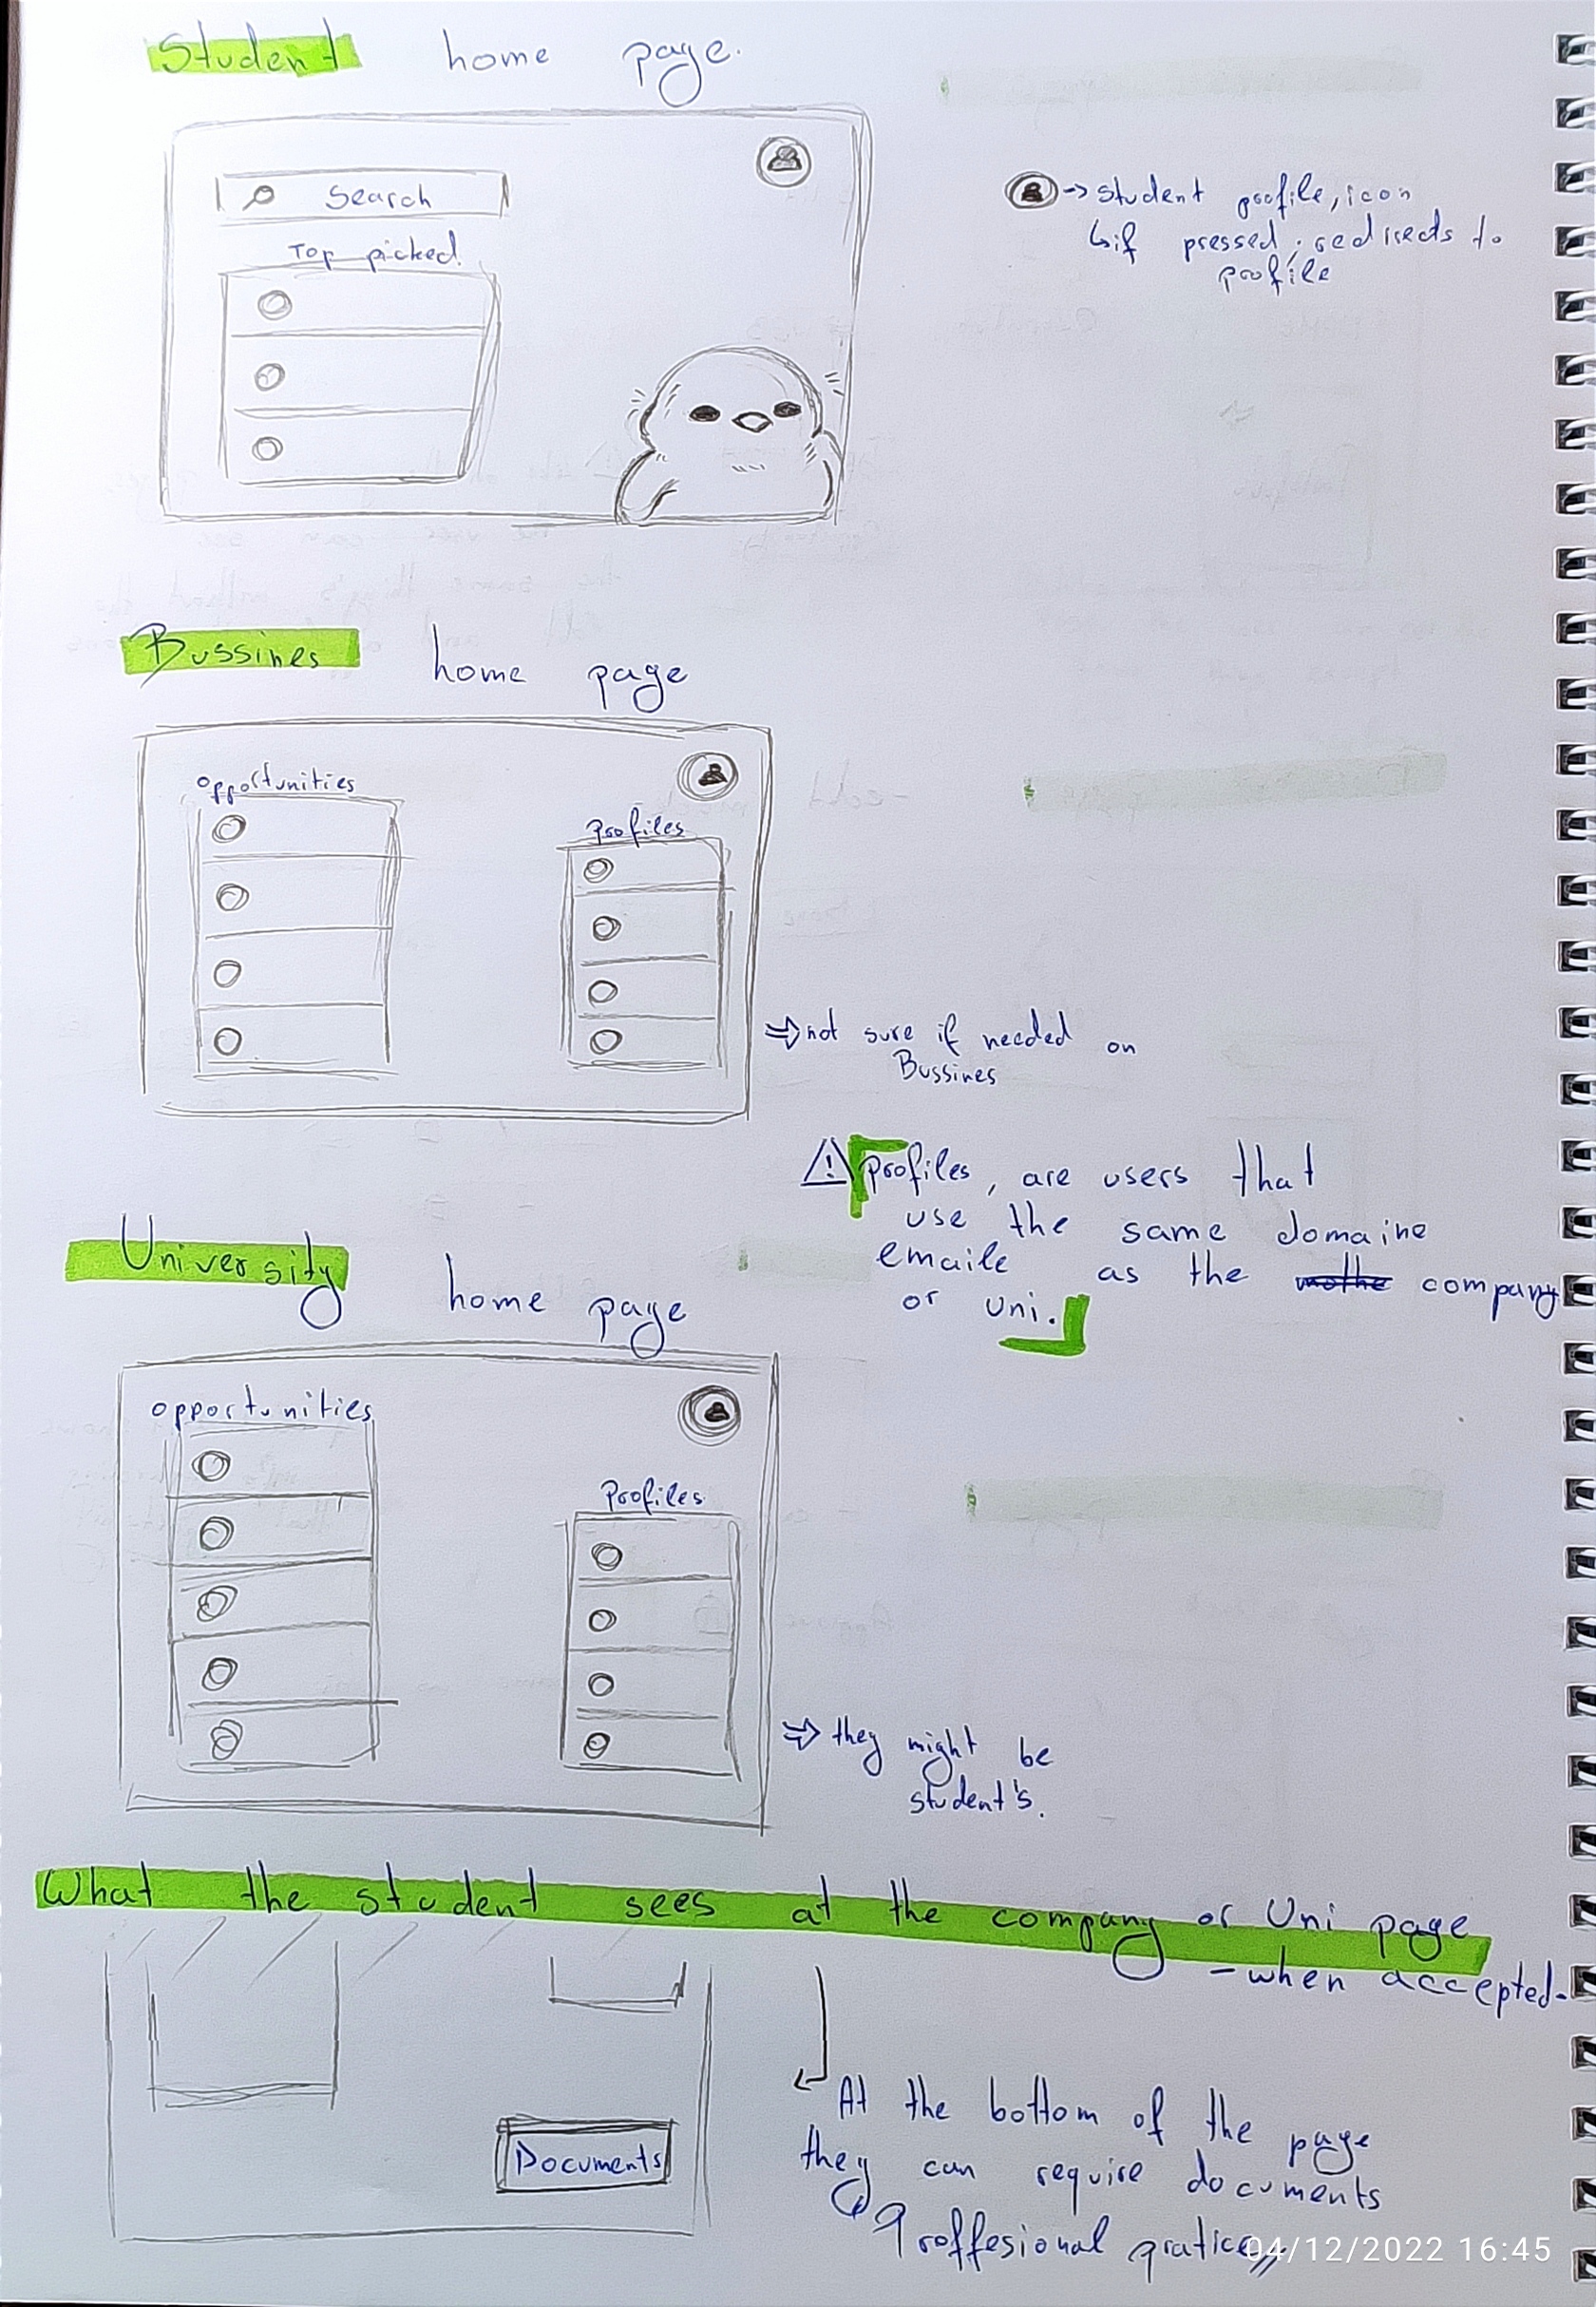 Student home page.
Search
Top picked
→ student profile, icon
↳ if pressed; redirects to
profile
Bussines home page
opportunities
Profiles
⇒ not sure if needed on
Bussines
⚠ Profiles, are users that
use the same domaine
emaile as the company
or uni.
University home page
opportunities
Profiles
⇒ they might be
student's.
What the student sees at the company or Uni page
- when accepted-
At the bottom of the page
they can require documents
Documents
Proffesional pratice
04/12/2022 16:45